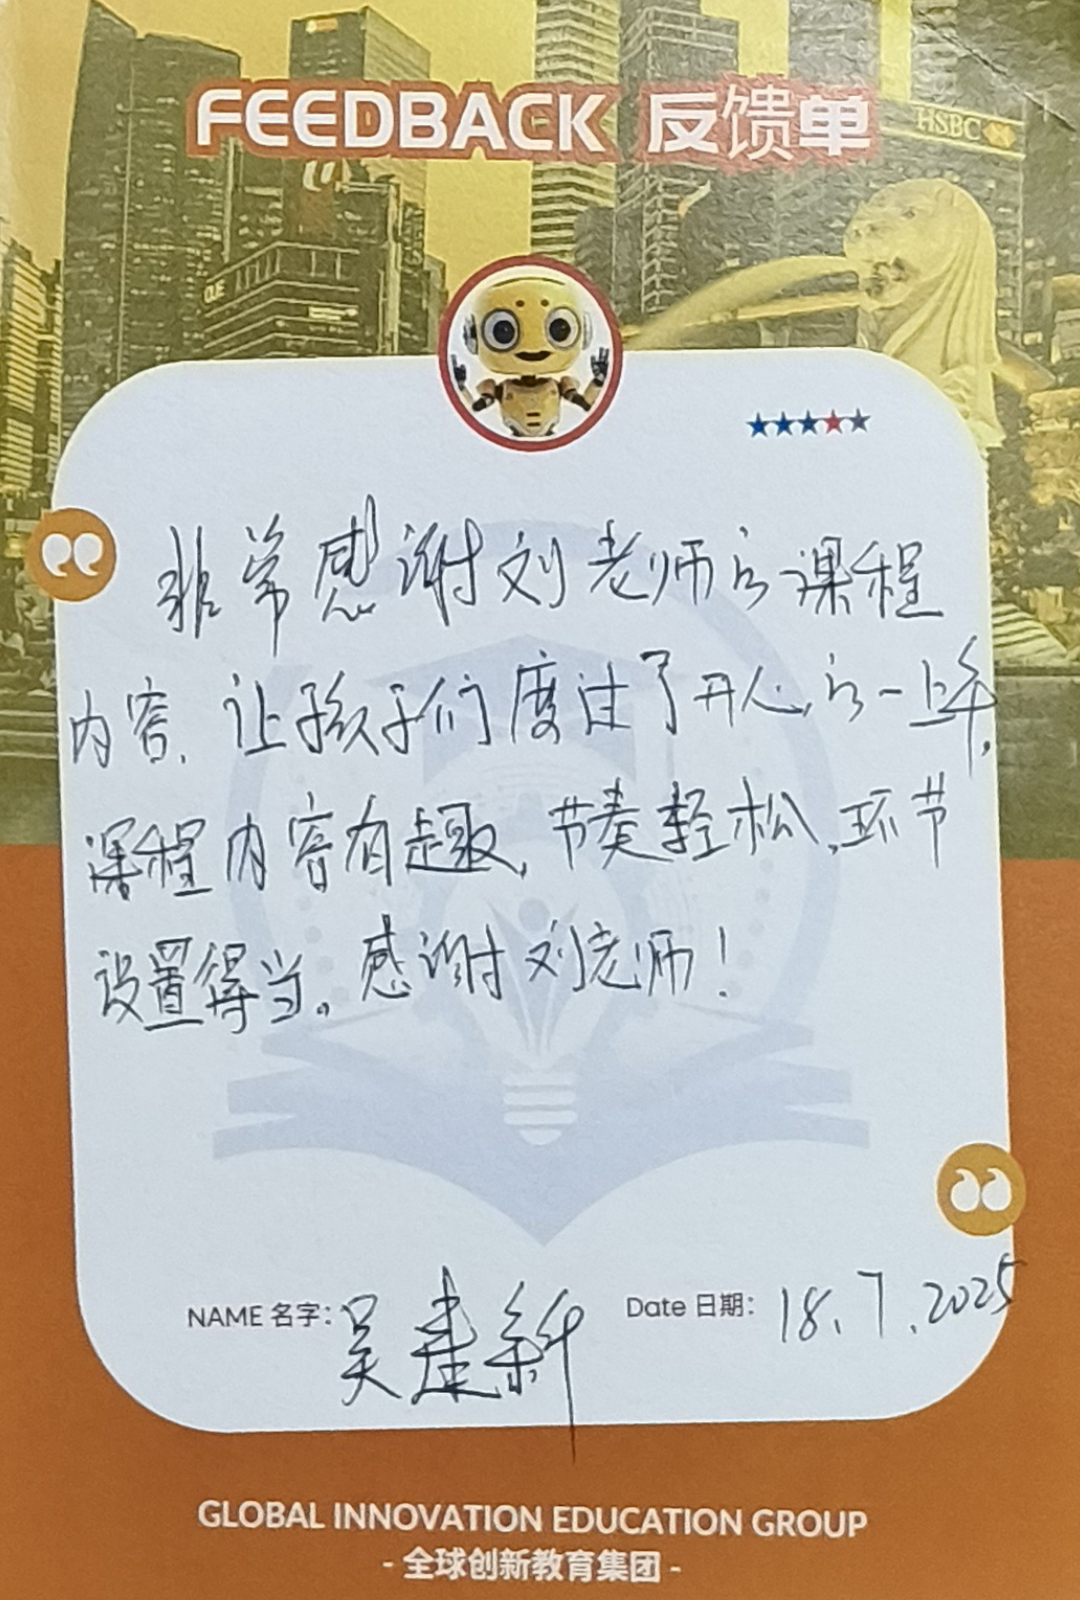 FEEDBACK 反馈单
HSBC
OUE
非常感谢刘老师的课程
内容,让孩子们度过了开心的一上午,
课程内容有趣,节奏轻松,环节
设置得当。感谢刘老师!
NAME 名字: 吴建新 Date 日期: 18.7.2025
GLOBAL INNOVATION EDUCATION GROUP
- 全球创新教育集团 -